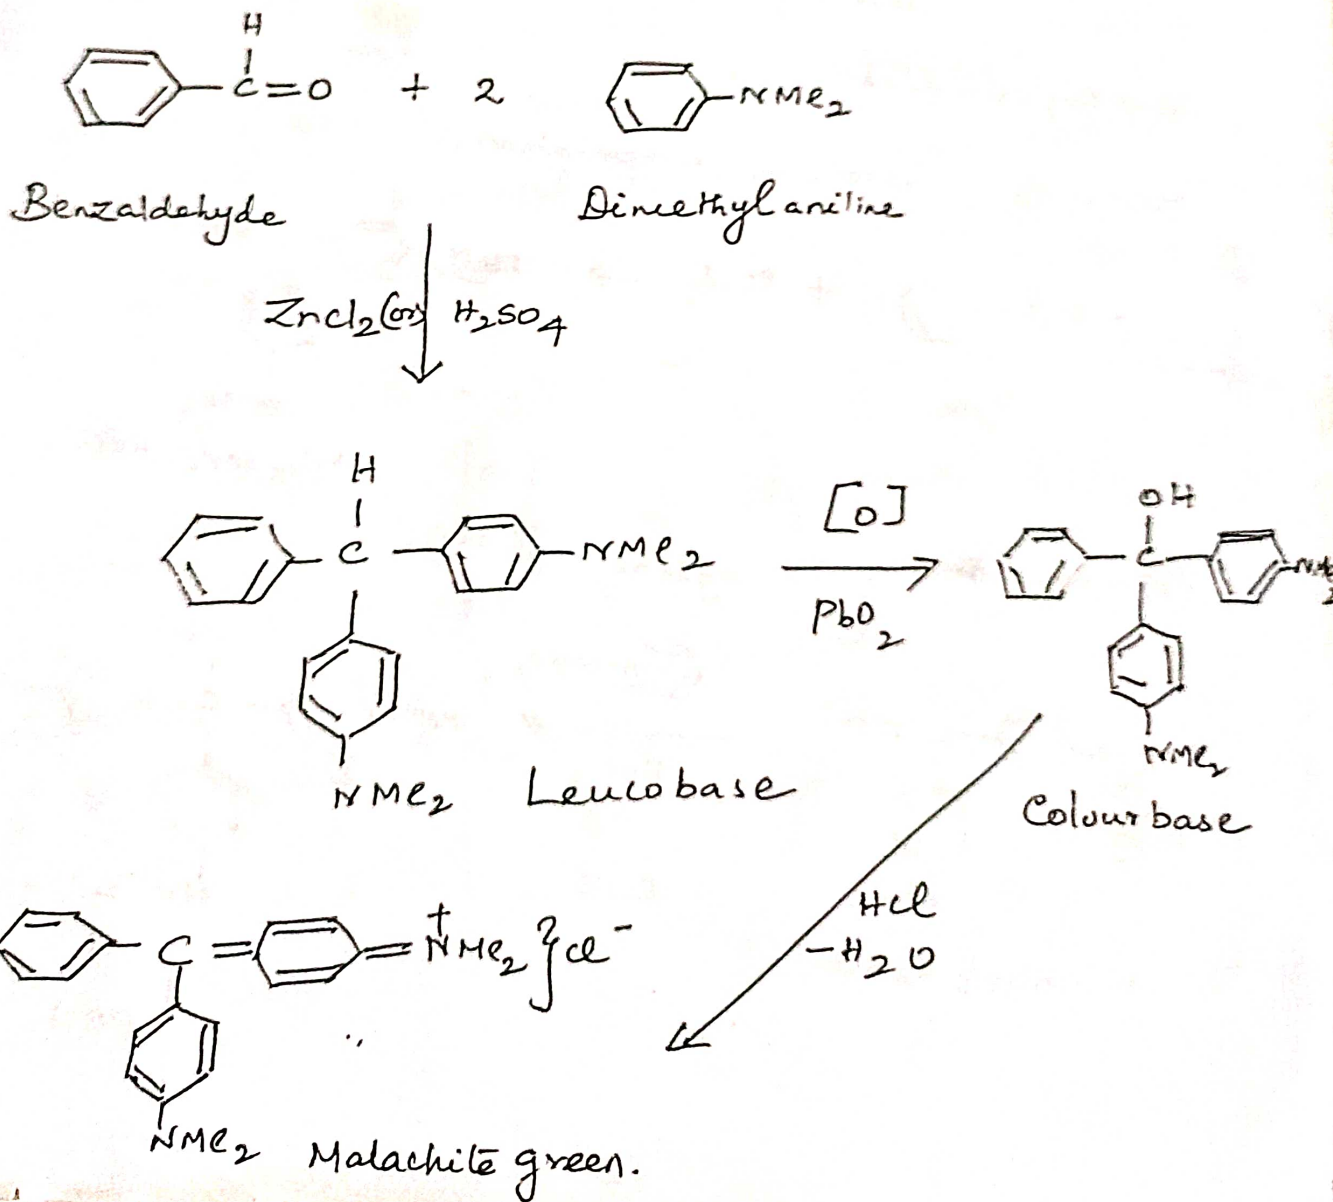 H
C=O + 2 NMe2
Benzaldehyde Dimethylaniline
ZnCl2 (or) H2SO4
H
C NMe2
[O]
PbO2
OH
C NMe2
NMe2 Leucobase
NMe2
Colourbase
HCl
-H2O
C = = N+Me2 } Cl-
NMe2 Malachite green.